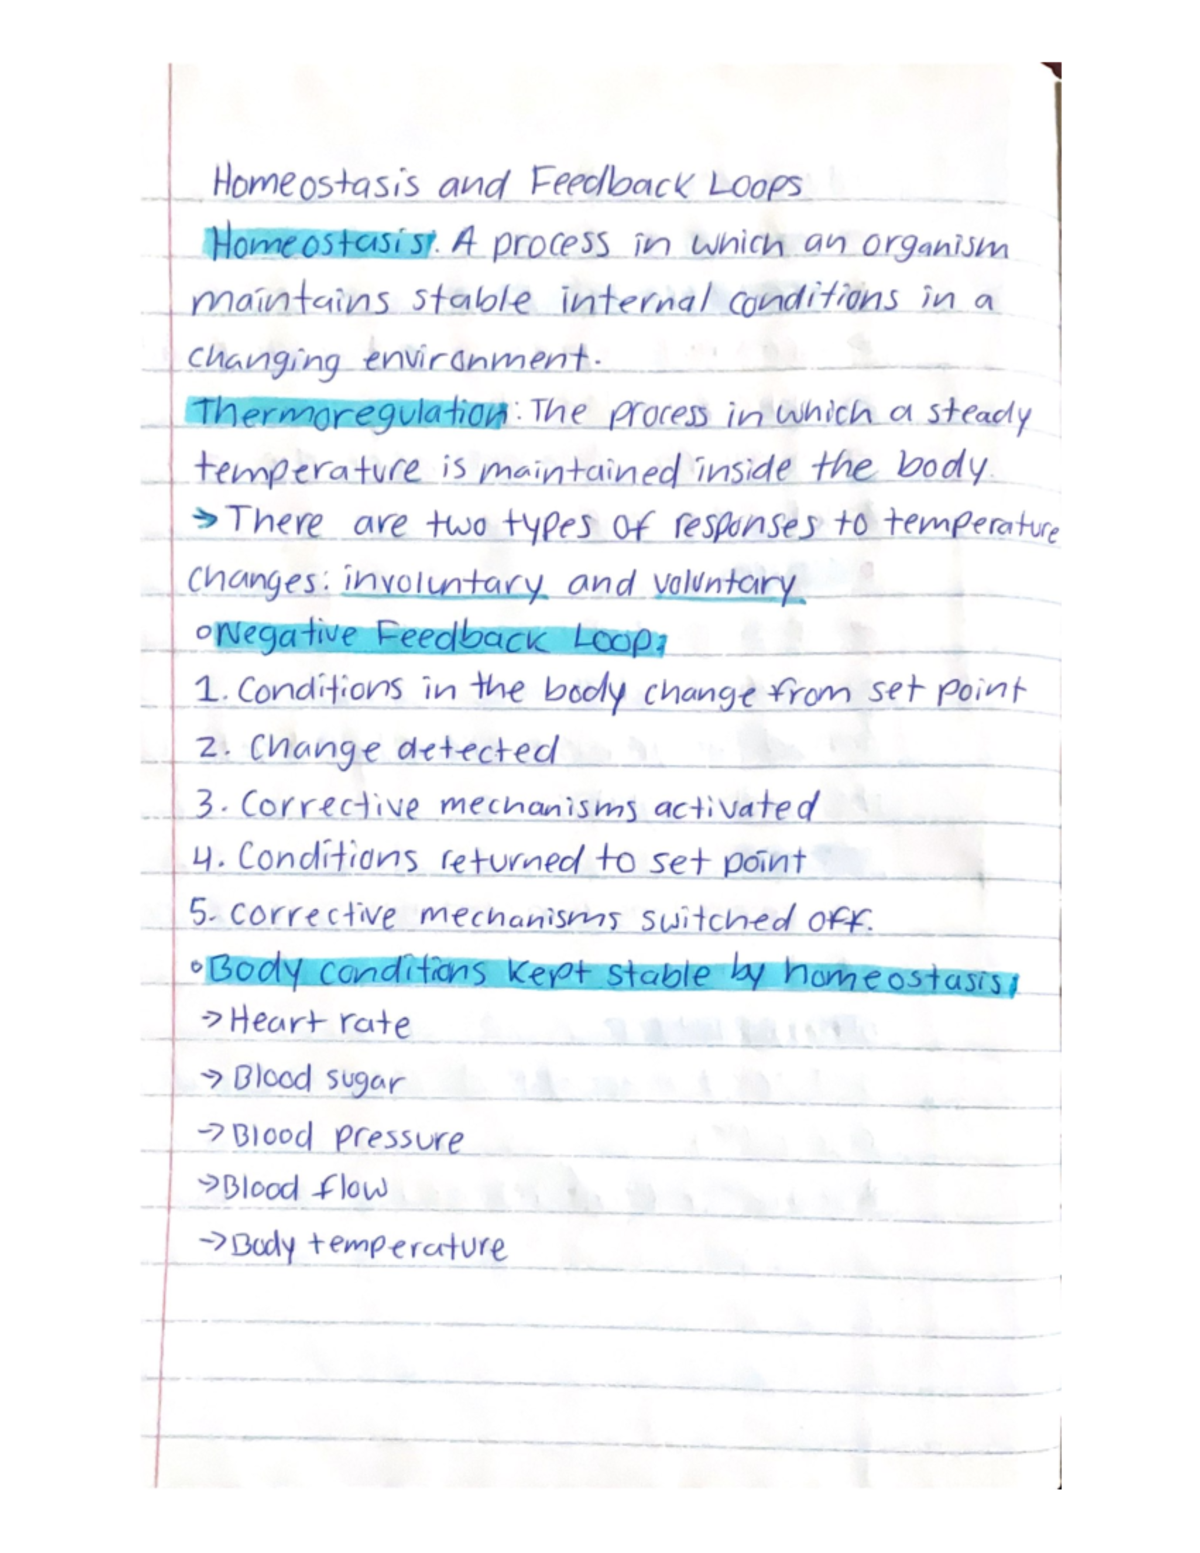 Homeostasis and Feedback Loops
Homeostasis: A process in which an organism
maintains stable internal conditions in a
changing environment.
Thermoregulation: The process in which a steady
temperature is maintained inside the body.
→ There are two types of responses to temperature
changes: involuntary and voluntary
○ Negative Feedback Loop:
1. Conditions in the body change from set point
2. Change detected
3. Corrective mechanisms activated
4. Conditions returned to set point
5. Corrective mechanisms switched off.
○ Body conditions kept stable by homeostasis:
→ Heart rate
→ Blood sugar
→ Blood pressure
→ Blood flow
→ Body temperature